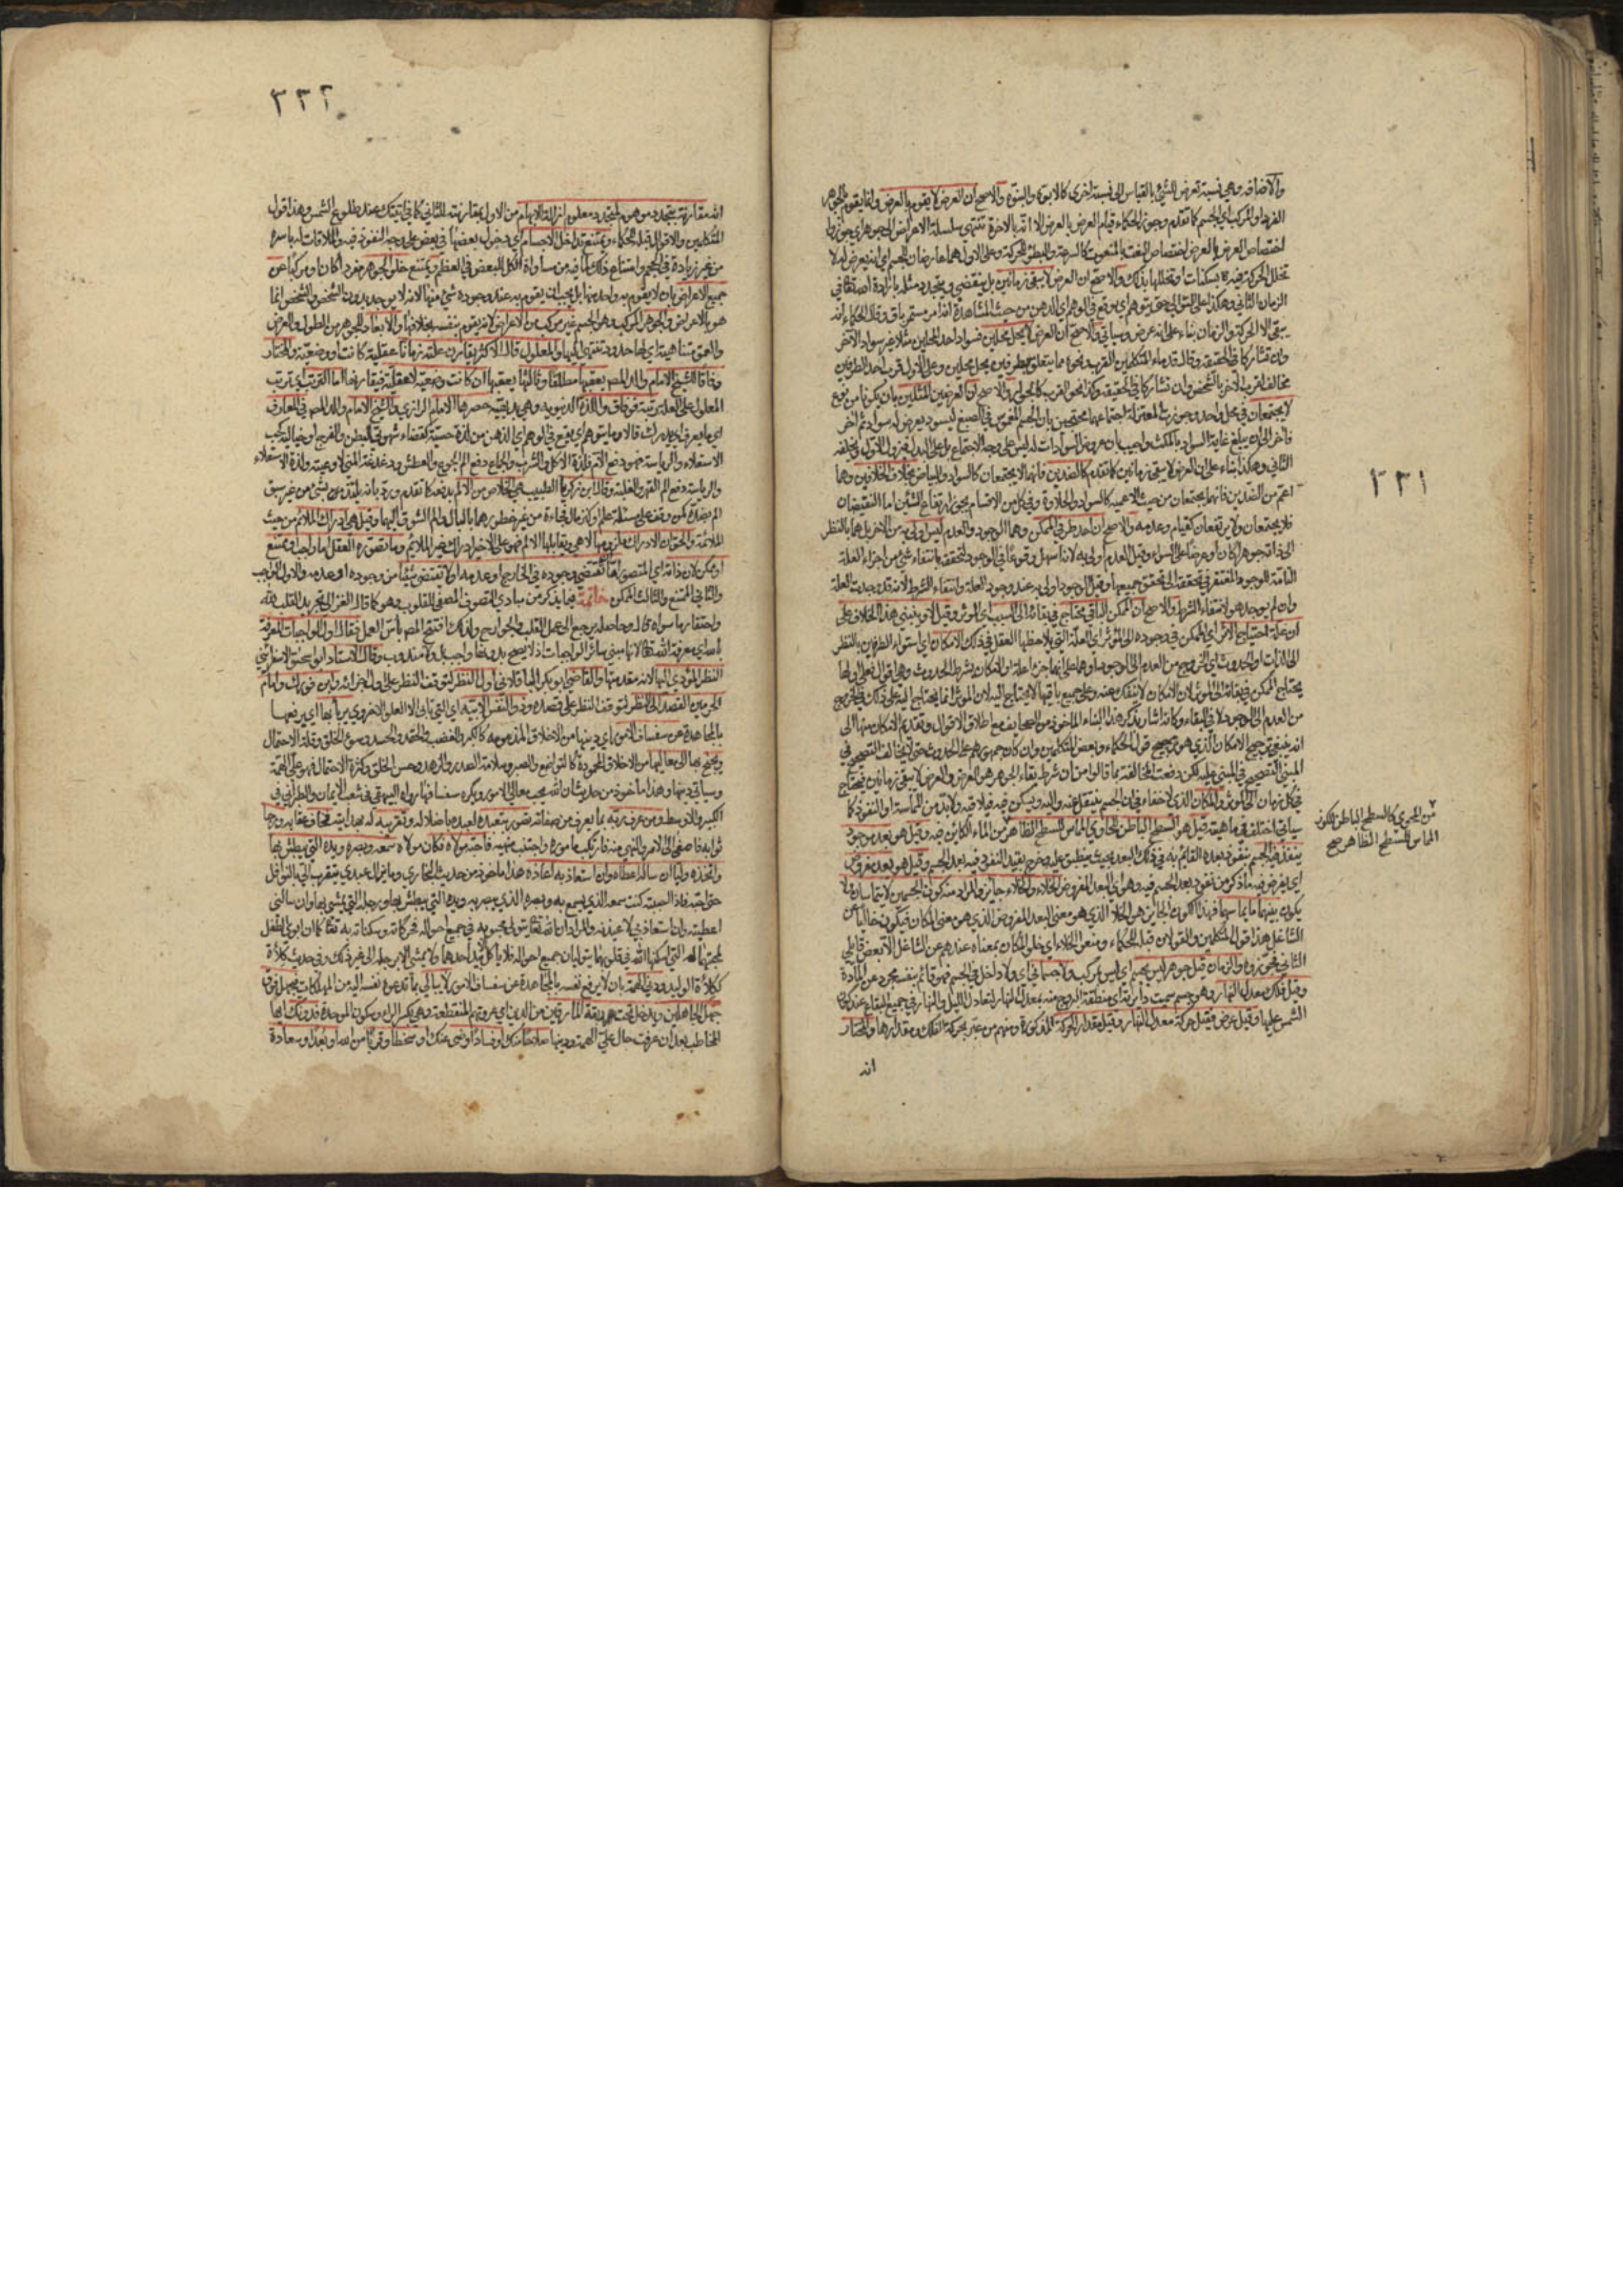 ٢٣١
والاضافة وهي نسبة تعرض للشيء بالقياس الى نسبة اخرى كالابوة والبنوة والاصح ان العرض لا يقوم بالعرض وانما يقوم بالجوهر
الفرد او المركب اي الجسم كما تقدم وجوز الحكماء قيام العرض بالعرض الا انه بالاخرة تنتهي سلسلة الاعراض الى جوهر اي جوزوا
اختصاص العرض بالعرض اختصاص النعت بالمنعوت كالسرعة والبطؤ للحركة وعلى الاول هما عارضان للجسم اي انه يعرض له لا
تخلل الحركة فيه بسكنات او تخللها بذلك والاصح ان العرض لا يبقى زمانين بل ينقضي ويتجدد مثله بارادة الله تعالى في
الزمان الثاني وهكذا على التوالي حتى يتوهم اي يوقع في الوهم اي الذهن من حيث المشاهدة انه امر مستمر باق وقال الحكماء انه
يبقى الا الحركة والزمان بناء على انه عرض وسياتي والاصح ان العرض لا يحل محلين فسواد احد المحلين مثلا غير سواد الآخر
وان تشاركا في الحقيقة وقال قدماء المتكلمين القرب ونحوه مما يتعلق بطرفين يحل محلين وعلى الاول قرب احد الطرفين
مخالف لقرب الآخر بالشخص وان تشاركا في الحقيقة وكذا نحو القرب كالجوار والاصح ان العرضين المثلين بان يكونا من نوع
لا يجتمعان في محل واحد وجوزت المعتزلة اجتماعهما محتجين بان الجسم المغموس في الصبغ ليسود يعرض له سواد ثم آخر
فآخر الى ان يبلغ غاية السواد بالمكث واجيب بان عروض السوادات له ليس على وجه الاجتماع بل على البدل فيزول الاول ويخلفه
الثاني وهكذا بناء على ان العرض لا يبقى زمانين كما تقدم كالضدين فانهما لا يجتمعان كالسواد والبياض بخلاف الخلافين وهما
اعم من الضدين فانهما يجتمعان من حيث الاعمية كالسواد والحلاوة وفي كل من الاقسام يجوز ارتفاع الشيئين اما النقيضان
فلا يجتمعان ولا يرتفعان كقيام وعدمه والاصح ان احد طرفي الممكن وهما الوجود والعدم ليس اولى به من الآخر بل هما بالنظر
الى ذاته جوهرا كان او عرضا على السواء وقيل العدم اولى به لانه اسهل وقوعا في الوجود لتحققه بانتفاء شيء من اجزاء العلة
التامة للوجود المفتقر في تحققه الى تحقق جميعها وقيل الوجود اولى به عند وجود العلة وانتفاء الشرط لانه قد وجدت العلة
وان لم يوجد هو لانتفاء الشرط والاصح ان الممكن الباقي محتاج في بقائه الى السبب اي المؤثر وقيل لا وينبني هذا الخلاف على
ان علة احتياج الاثر اي الممكن في وجوده الى المؤثر اي العلة التي يلاحظها العقل في ذلك الامكان اي استواء الطرفين بالنظر
الى الذات او الحدوث اي الخروج من العدم الى الوجود او هما على انهما جزءا علة او الامكان بشرط الحدوث وهي اقوال فعلى اولها
يحتاج الممكن في بقائه الى المؤثر لان الامكان لا ينفك عنه وعلى جميع باقيها لا يحتاج اليه لان المؤثر انما يحتاج اليه على ذلك في الخروج
من العدم الى الوجود لا في البقاء وكانه اشار بذكر هذا البناء الماخوذ من الصحايف مع اطلاق الاقوال وتقديم الامكان منها الى
انه ينبغي ترجيح الامكان الذي هو ترجيح قول الحكماء وبعض المتكلمين وان كان جمهورهم على الحدوث حتى لا يخالف التصحيح في
المبني التصحيح في المبني عليه لكن دفعت المخالفة بما قالوا من ان شرط بقاء الجوهر هو العرض والعرض لا يبقى زمانين فيحتاج
في كل زمان الى المؤثر والمكان الذي لا خفاء في ان الجسم ينتقل عنه واليه ويسكن فيه فيلاقيه ولا بد من المماسة او النفوذ كما
سياتي اختلف في ماهيته قيل هو السطح الباطن للحاوي المماس للسطح الظاهر من الماء الكائن فيه وقيل هو بعد موجود
ينفذ فيه الجسم بنفوذ بعده القائم به في ذلك البعد بحيث ينطبق عليه وخرج بقيد النفوذ فيه بعد الجسم وقيل هو بعد مفروض
اي يفرض فيه ما ذكر من نفوذ بعد الجسم فيه وهو اي البعد المفروض الخلاء والخلاء جائز والمراد منه كون الجسمين لا يتماسان ولا
يكون بينهما ما يماسهما فهذا الكون الجائز هو الخلا الذي هو معنى البعد المفروض الذي هو معنى المكان فيكون خاليا عن
الشاغل هذا قول المتكلمين والقولان قبله للحكماء ومنعوا الخلاء اي خلو المكان بمعناه عندهم عن الشاغل الا بعض قايلي
الثاني فجوزوه والزمان قيل جوهر ليس بجسم اي ليس بمركب ولا جسماني اي ولا داخل في الجسم فهو قائم بنفسه مجرد عن المادة
وقيل فلك معدل النهار وهو جسم سميت دائرته اي منطقة البروج منه بمعدل النهار لتعادل الليل والنهار في جميع البقاع عند كون
الشمس عليها وقيل عرض فقيل حركة معدل النهار وقيل مقدار الحركة المذكورة ومنهم من عبر بحركة الفلك ومقدارها والمختار
انه
من المحوي كالسطح الباطن للكوز
المماس للسطح الظاهر صح
٢٣٢
انه مقارنة متجدد موهوم لمتجدد معلوم ازالة للابهام من الاول بمقارنته للثاني كما في آتيك عند طلوع الشمس وهذا قول
المتكلمين والاقوال قبله للحكماء ويمتنع تداخل الاجسام اي دخول بعضها في بعض على وجه النفوذ فيه والملاقات له باسره
من غير زيادة في الحجم وامتناع ذلك لما فيه من مساواة الكل للبعض في العظم ويمتنع خلو الجوهر مفردا كان او مركبا عن
جميع الاعراض بان لا يقوم به واحد منها بل يجب ان يقوم به عند وجوده شيء منها لانه لا يوجد بدون التشخص والتشخص انما
هو بالاعراض والجوهر المركب وهو الجسم غير مركب من الاعراض لانه يقوم بنفسه بخلافها والابعاد للجوهر من الطول والعرض
والعمق متناهية اي لها حدود تنتهي اليها والمعلول قال الاكثر يقارن علته زمانا عقلية كانت او وضعية والمختار
وفاقا للشيخ الامام والد المص يعقبها مطلقا وثالثها يعقبها ان كانت وضعية لا عقلية فيقارنها اما الترتب اي ترتب
المعلول على العلة رتبة فوفاق واللذة الدنيوية وهي بديهية حصرها الامام الرازي والشيخ الامام والد المص في المعارف
اي ما يعرف اي يدرك قالا وما يتوهم اي يوقع في الوهم اي الذهن من لذة حسية كقضاء شهوتي البطن والفرج او خيالية كحب
الاستعلاء والرياسة فهو دفع الالم فلذة الاكل والشرب والجماع دفع الم الجوع والعطش ودغدغة المني لاوعيته ولذة الاستعلاء
والرياسة دفع الم القهر والغلبة وقال ابن زكريا الطبيب هي الخلاص من الالم بدفعه كما تقدم ورد بانه يلتذ من بشيء من غير سبق
الم بضده كمن وقف على مسئلة علم او كنز مال فجاءة من غير خطورهما بالبال والم الشوق اليهما وقيل هي ادراك الملائم من حيث
الملائمة والحق ان الادراك ملزومها لا هي ويقابلها الالم فهو على الاخير ادراك غير الملائم وما تصوره العقل اما واجب او ممتنع
او ممكن لان ذاته اي المتصور اما ان تقتضي وجوده في الخارج او عدمه او لا تقتضي شيئا من وجوده او عدمه والاول الواجب
والثاني الممتنع والثالث الممكن خاتمة فيما يذكر من مبادي التصوف المصفي للقلوب وهو كما قال الغزالي تجريد القلب لله
واحتقار ما سواه قال وحاصله يرجع الى عمل القلب والجوارح ولذلك افتتح المص باس العمل فقال اول الواجبات المعرفة
بالله اي معرفة الله تعالى لانها مبنى سائر الواجبات اذ لا يصح بدونها واجب بل ولا مندوب وقال الاستاذ ابو اسحق الاسفرايني
النظر المؤدي اليها لانه مقدمتها والقاضي ابو بكر الباقلاني اول النظر لتوقف النظر على اول اجزائه وابن فورك وامام
الحرمين القصد الى النظر لتوقف النظر على قصده وذو النفس الابية اي التي تابى الا العلو الاخروي يربأ بها اي يرفعها
بالمجاهدة عن سفساف الامور اي دنيها من الاخلاق المذمومة كالكبر والغضب والحقد والحسد وسوء الخلق وقلة الاحتمال
ويجنح بها الى معاليها من الاخلاق المحمودة كالتواضع والصبر وسلامة الصدر والزهد وحسن الخلق وكثرة الاحتمال فهو علي الهمة
وسياتي دنيها وهذا ماخوذ من حديث ان الله يحب معالي الامور ويكره سفسافها رواه البيهقي في شعب الايمان والطبراني في
الكبير والاوسط ومن عرف ربه بما يعرف من صفاته تصور تبعيده لعبده باضلاله وتقريبه له بهدايته فخاف عقابه ورجا
ثوابه فاصغى الى الامر والنهي منه فارتكب ماموره واجتنب منهيه فاحبه مولاه فكان مولاه سمعه وبصره ويده التي يبطش بها
واتخذه وليا ان ساله اعطاه وان استعاذ به اعاذه هذا ماخوذ من حديث البخاري وما يزال عبدي يتقرب الي بالنوافل
حتى احبه فاذا احببته كنت سمعه الذي يسمع به وبصره الذي يبصر به ويده التي يبطش بها ورجله التي يمشي بها وان سالني
اعطيته وان استعاذ بي لاعيذنه والمراد ان الله تعالى يتولى محبوبه في جميع احواله فحركاته وسكناته به تعالى كما ان ابوي الطفل
لمحبتهما له التي اسكنها الله في قلوبهما يتوليان جميع احواله فلا ياكل الا بيد احدهما ولا يمشي الا برجله الى غير ذلك وفي حديث كلاءة
ككلاءة الوليد ودني الهمة بان لا يرفع نفسه بالمجاهدة عن سفساف الامور لا يبالي بما تدعوه نفسه اليه من المهلكات فيجهل فوق
جهل الجاهلين ويدخل تحت ربقة المارقين من الدين اي عروتهم المنقطعة وهي بكسر الراء وسكون الموحدة فدونك ايها
المخاطب بعد ان عرفت حال علي الهمة ودنيها صلاحا منك او فسادا ورضى عنك او سخطا وقربا من الله او بعدا وسعادة